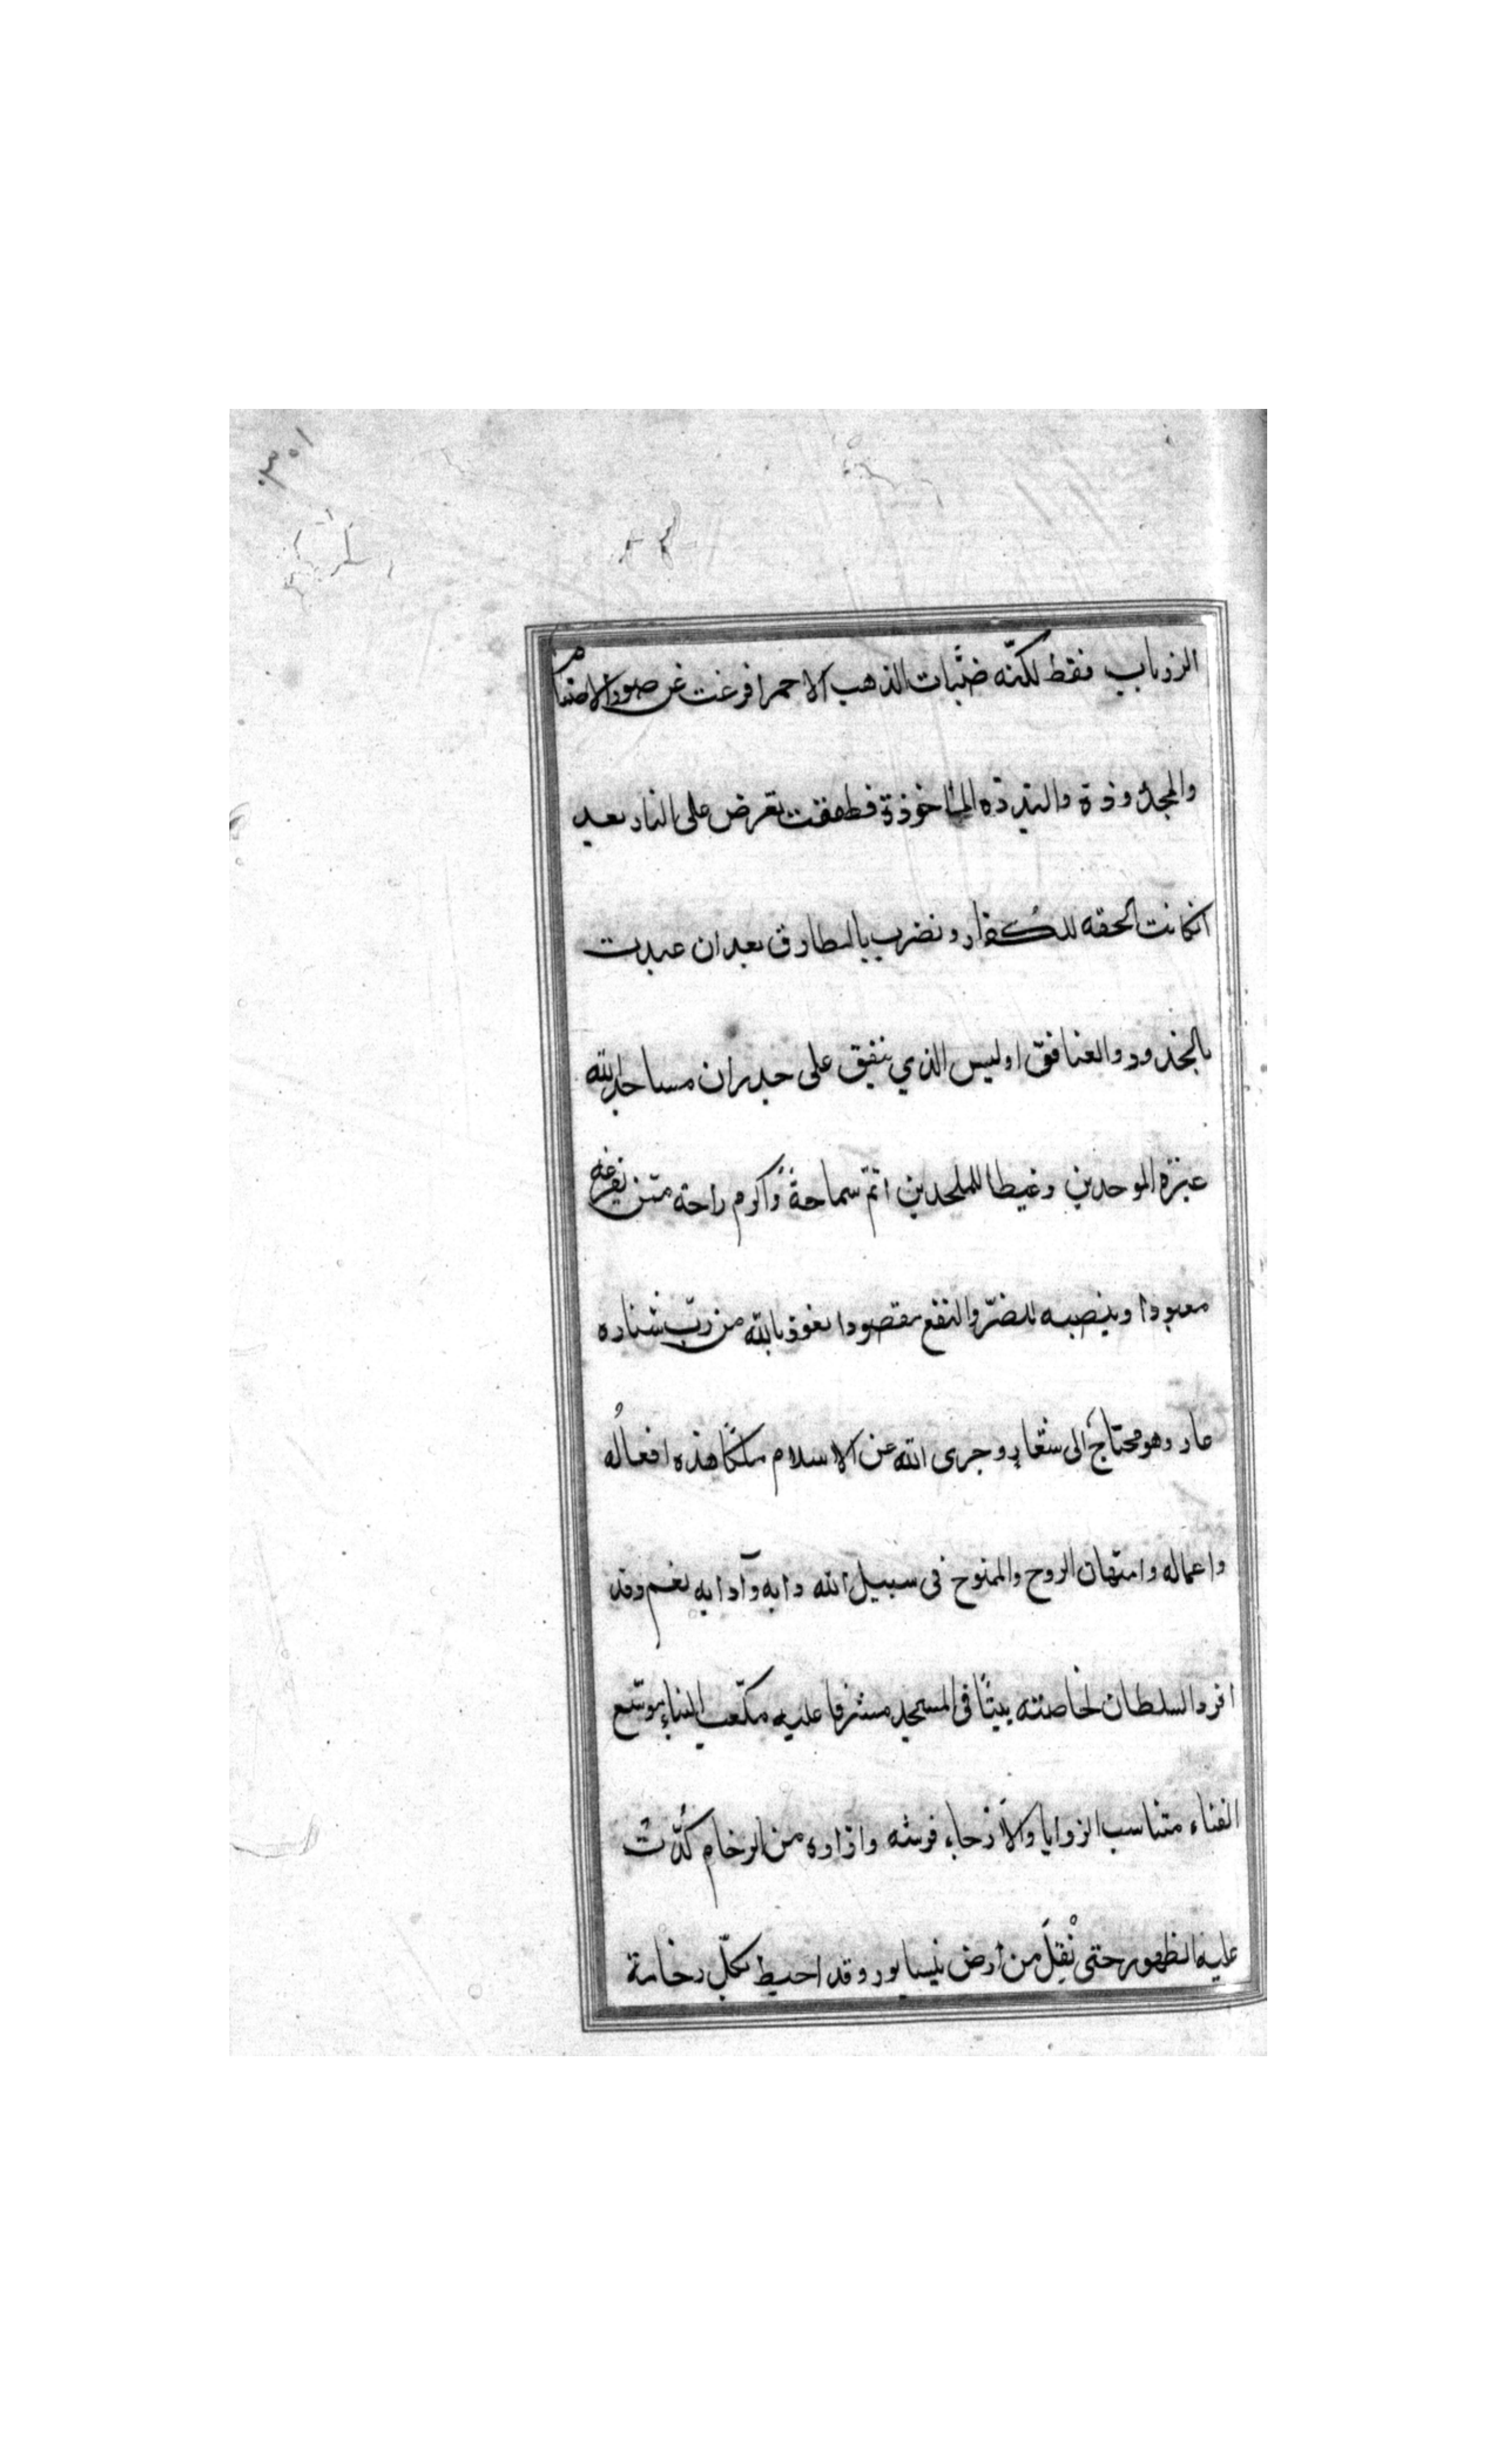 ٣٠١
الزرياب فقط لكنّه ضبّات الذهب الاحمر افرغت عن صور الاصنام
والمجذوذة والبدده الماخوذة فطفقت تعرض على النار بعد
انكانت الحقه للكفار و تضرب بالمطارق بعد ان عبدت
بالخدود والعنافق اوليس الذي ينفق على جدران مساجد الله
عبرة الموحدين وغيظا للملحدين اتمّ سماحةً واكرم راحة ممّن يفرغه
معبودا وينصبه للضرّ والنفع مقصودا نعوذ بالله من ربّ شناره
عار وهو محتاج الى شعارٍ و جرى الله عن الاسلام ملكًا هذه افعالُه
واعماله وامتهان الروح والممنوح فى سبيل الله دابه وآدابه نعم وقد
افرد السلطان لخاصته بيتًا فى المسجد مشرفا عليه مكعّب البناءِ موسّع
الفناء متناسب الزوايا والاَرجاء فرشه وازاره من الرخام كُدّت
عليه الظهور حتى نُقِلَ من أرض نيسابور وقد احيط بكلّ رخامة